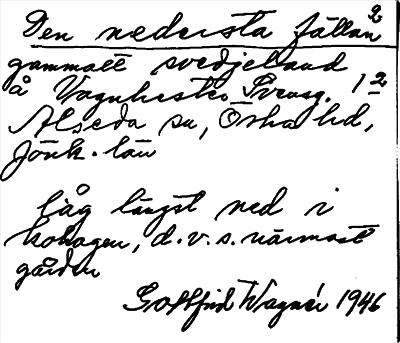 Den nedersta fällan 2
gammalt svedjeland
å Vagnhester Sverug. 1 2
Alseda sn, Östra hd,
Jönk. län
låg längst ned i
kohagen, d.v.s. närmast
gården
Gottfrid Wagnér 1946